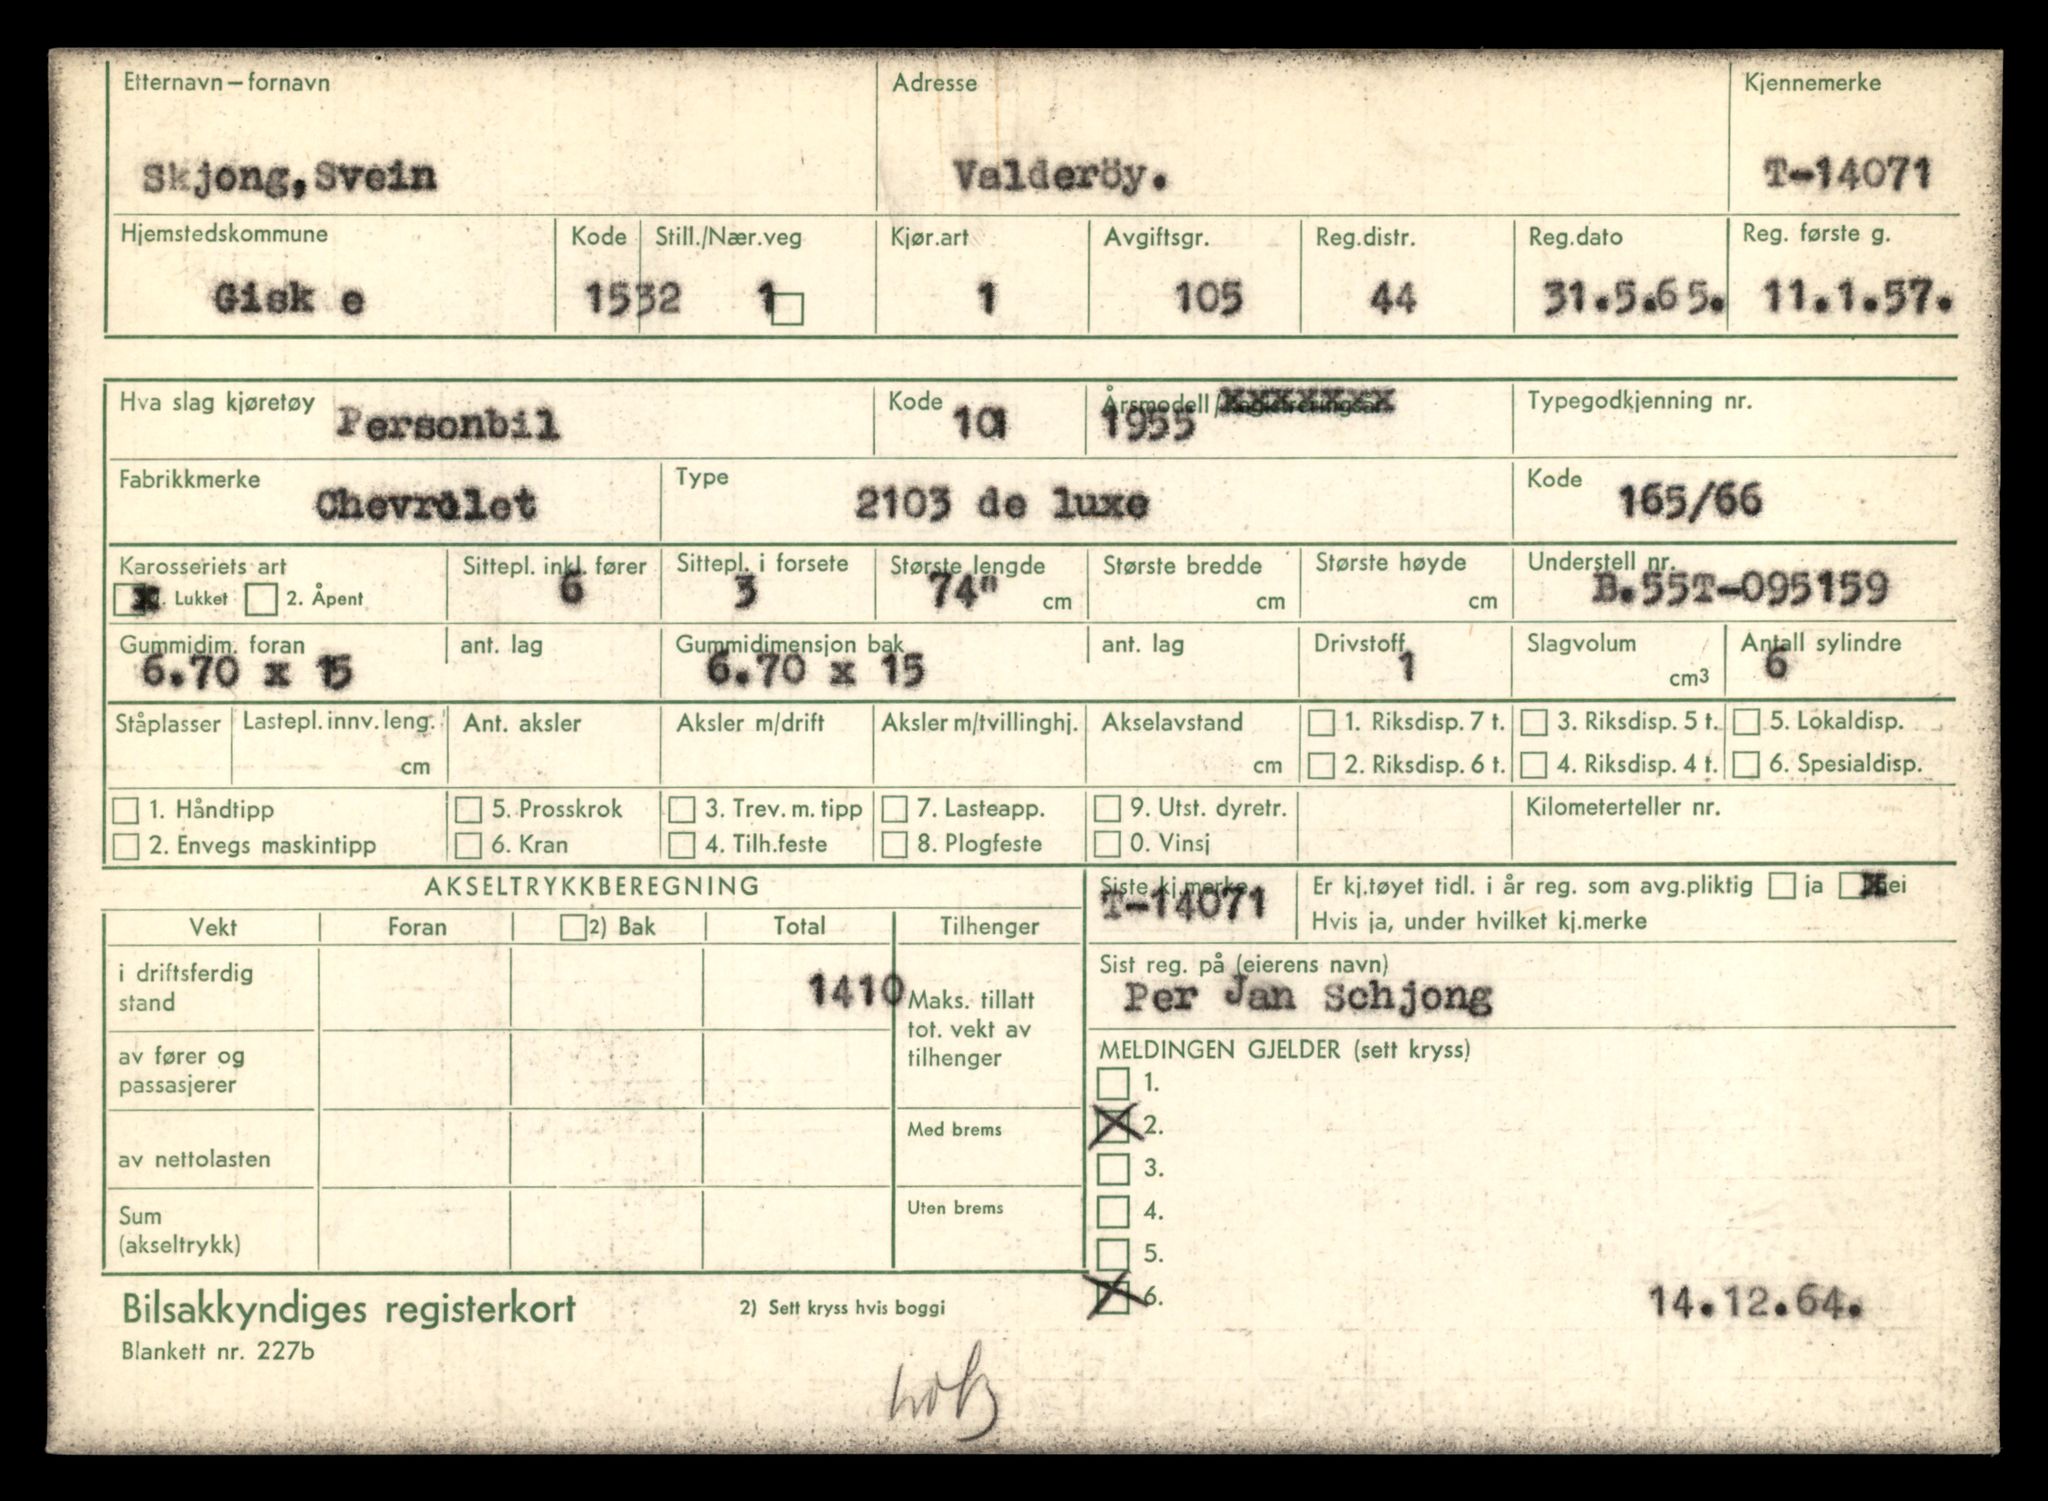 Etternavn – fornavn Adresse Kjennemerke
Skjong, Svein Valderöy. T-14071
Hjemstedskommune Kode Still./Nær.veg Kjør.art Avgiftsgr. Reg.distr. Reg.dato Reg. første g.
Gisk e 1532 1 1 105 44 31.5.65. 11.1.57.
Hva slag kjøretøy Personbil Kode 101 Årsmodell/ xxxxxxxx 1955 Typegodkjenning nr.
Fabrikkmerke Chevrolet Type 2103 de luxe Kode 165/66
Karosseriets art Sittepl. inkl. fører Sittepl. i forsete Største lengde Største bredde Største høyde Understell nr.
x 1. Lukket 2. Åpent 6 3 74" cm cm cm B.55T-095159
Gummidim. foran ant. lag Gummidimensjon bak ant. lag Drivstoff Slagvolum Antall sylindre
6.70 x 15 6.70 x 15 1 cm3 6
Ståplasser Lastepl. innv. leng. Ant. aksler Aksler m/drift Aksler m/tvillinghj. Akselavstand 1. Riksdisp. 7 t. 3. Riksdisp. 5 t. 5. Lokaldisp.
cm cm 2. Riksdisp. 6 t. 4. Riksdisp. 4 t. 6. Spesialdisp.
1. Håndtipp 5. Prosskrok 3. Trev. m. tipp 7. Lasteapp. 9. Utst. dyretr. Kilometerteller nr.
2. Envegs maskintipp 6. Kran 4. Tilh.feste 8. Plogfeste 0. Vinsj
AKSELTRYKKBEREGNING
Vekt Foran 2) Bak Total Tilhenger
i driftsferdig stand 1410 Maks. tillatt tot. vekt av tilhenger
av fører og passasjerer
Med brems
av nettolasten
Uten brems
Sum (akseltrykk)
Siste kj.merke T-14071
Er kj.tøyet tidl. i år reg. som avg.pliktig ja x nei
Hvis ja, under hvilket kj.merke
Sist reg. på (eierens navn)
Per Jan Schjong
MELDINGEN GJELDER (sett kryss)
1.
2.
3.
4.
5.
6.
14.12.64.
Bilsakkyndiges registerkort 2) Sett kryss hvis boggi
Blankett nr. 227b